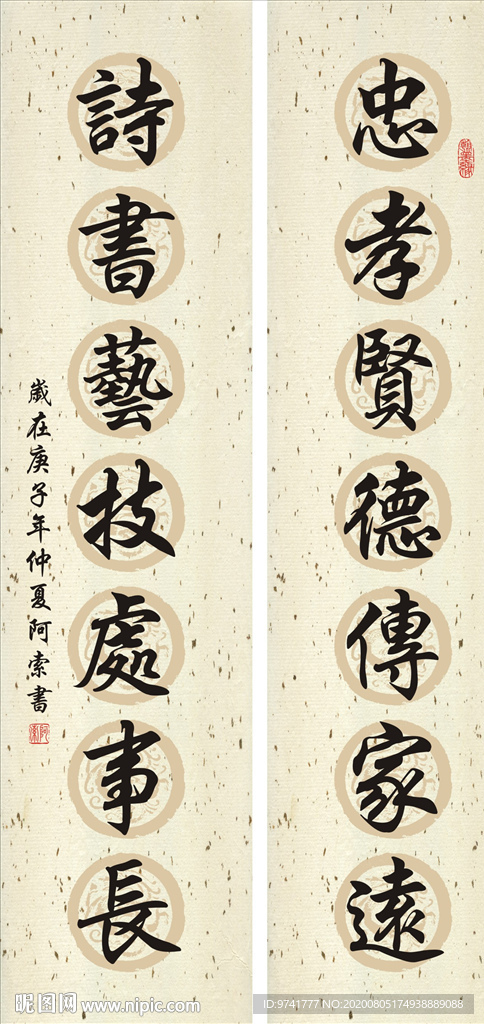 忠孝賢德傳家遠
詩書藝技處事長
歲在庚子年仲夏阿索書
昵图网 www.nipic.com
ID:9741777 NO:20200805174938889088